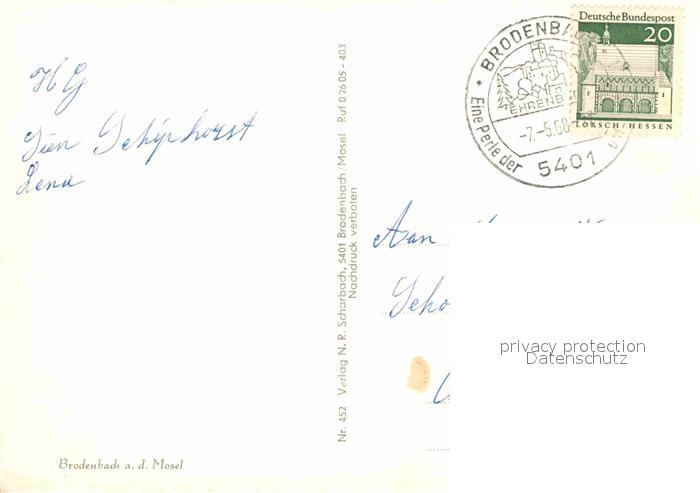 HG
Sien Schiphorst
Lena
Brodenbach a. d. Mosel
Nr. 452 Verlag N. R. Scharbach, 5401 Brodenbach/Mosel Ruf 02605-403
Nachdruck verboten
BRODENBAC
EHRENB
-7.-5.68
Eine Perle der
5401
Deutsche Bundespost
20
LORSCH/HESSEN
Aan
Scho
privacy protection
Datenschutz